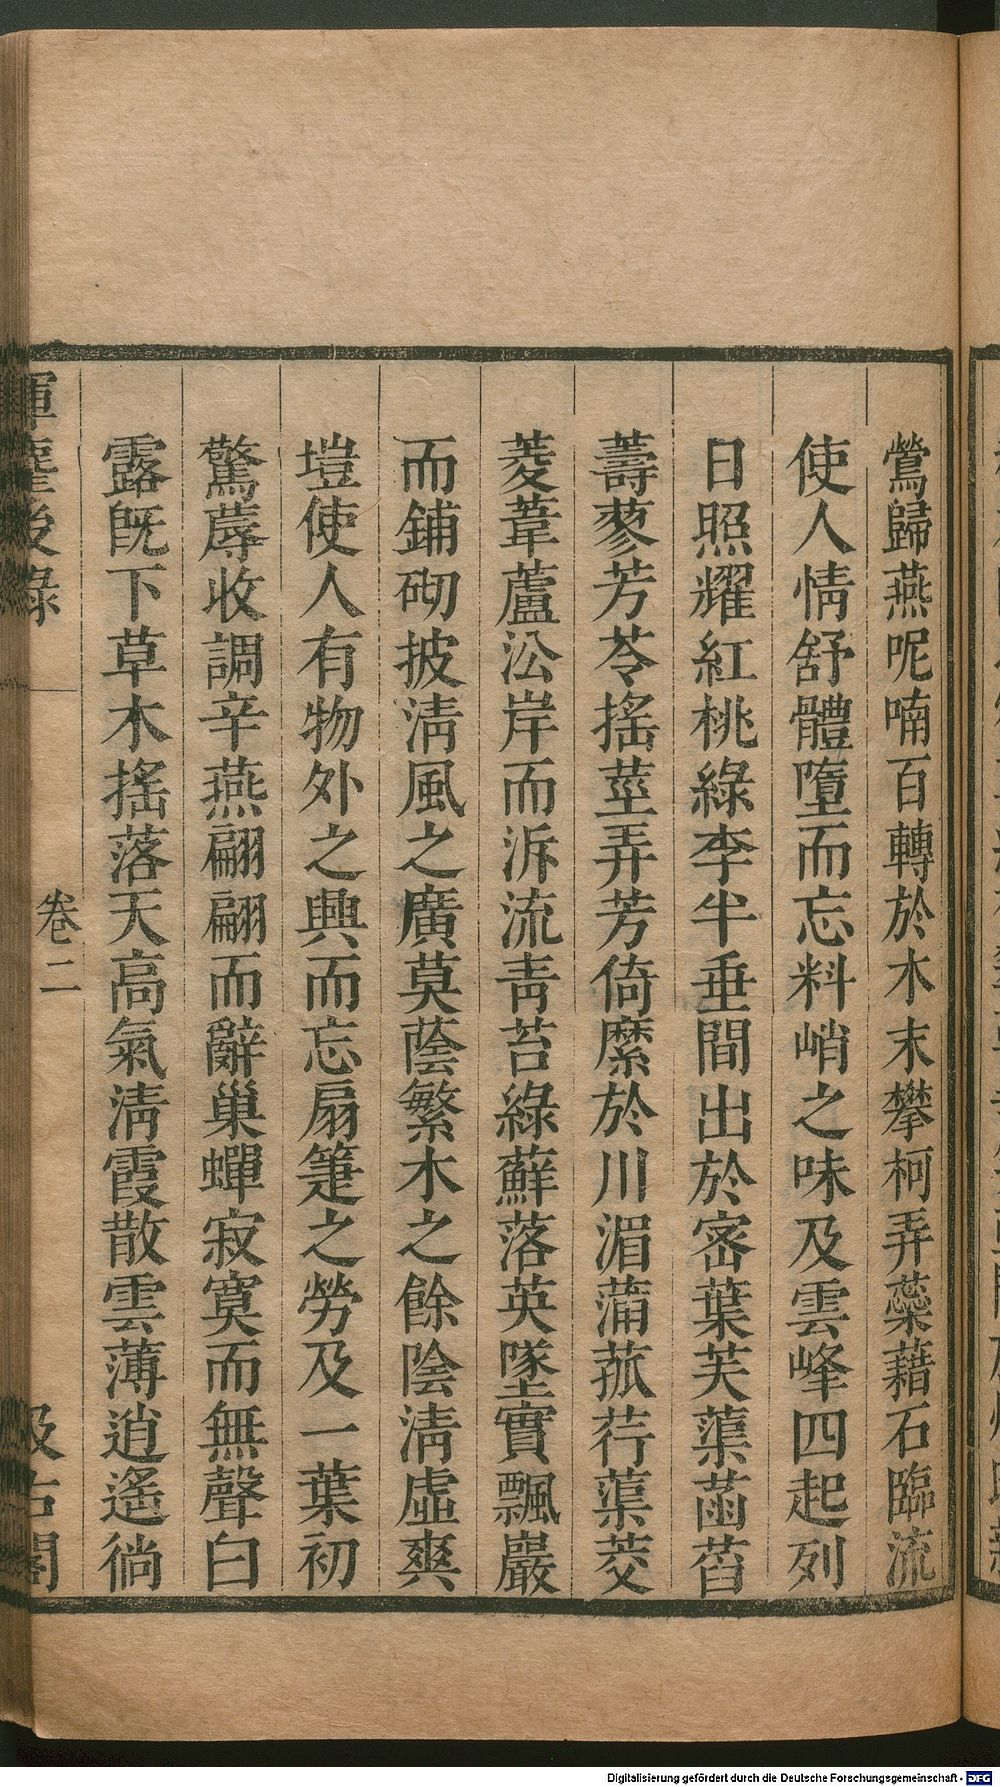 鶯歸燕呢喃百轉於木末攀柯弄蘂藉石臨流
使人情舒體墮而忘料峭之味及雲峰四起列
日照耀紅桃綠李半垂間出於宻葉芙蕖菡萏
薵蓼芳苓搖莖弄芳倚縻於川湄蒲菰荇蕖茭
菱葦蘆汾岸而泝流靑苔綠蘚落英墜實飄巖
而鋪砌披淸風之廣莫蔭繁木之餘陰淸虛爽
塏使人有物外之興而忘扇箑之勞及一葉初
驚蓐收調辛燕翩翩而辭巢蟬寂寞而無聲白
露旣下草木搖落天高氣淸霞散雲薄逍遙徜
揮麈後錄
卷二
汲古閣
Digitalisierung gefördert durch die Deutsche Forschungsgemeinschaft - DFG